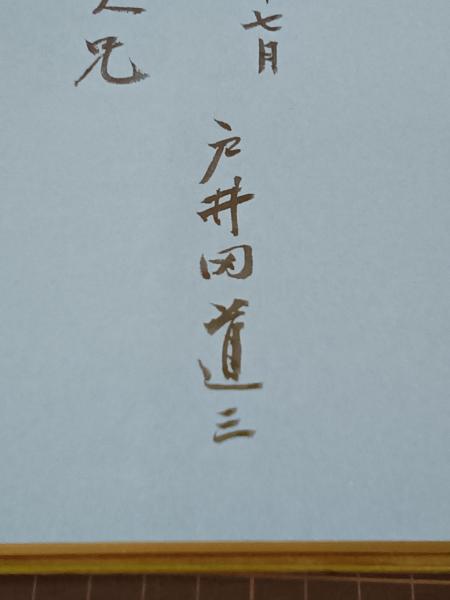 七月
戸井田道三
兄